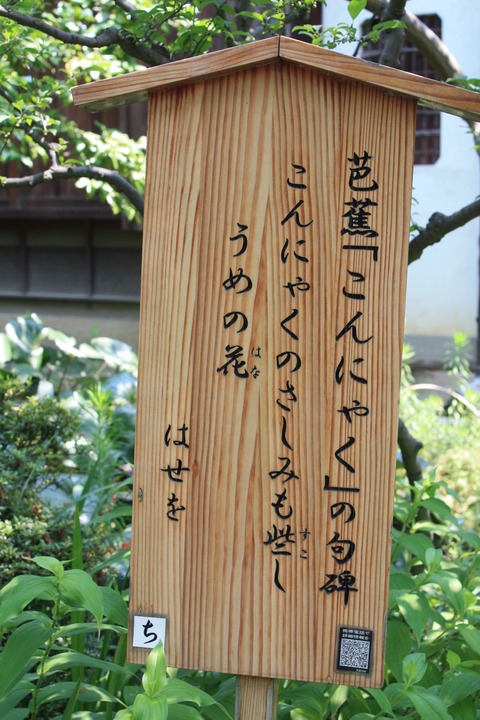 芭蕉「こんにゃく」の句碑
こんにゃくのさしみも些し
すこ
うめの花
はな
はせを
ち